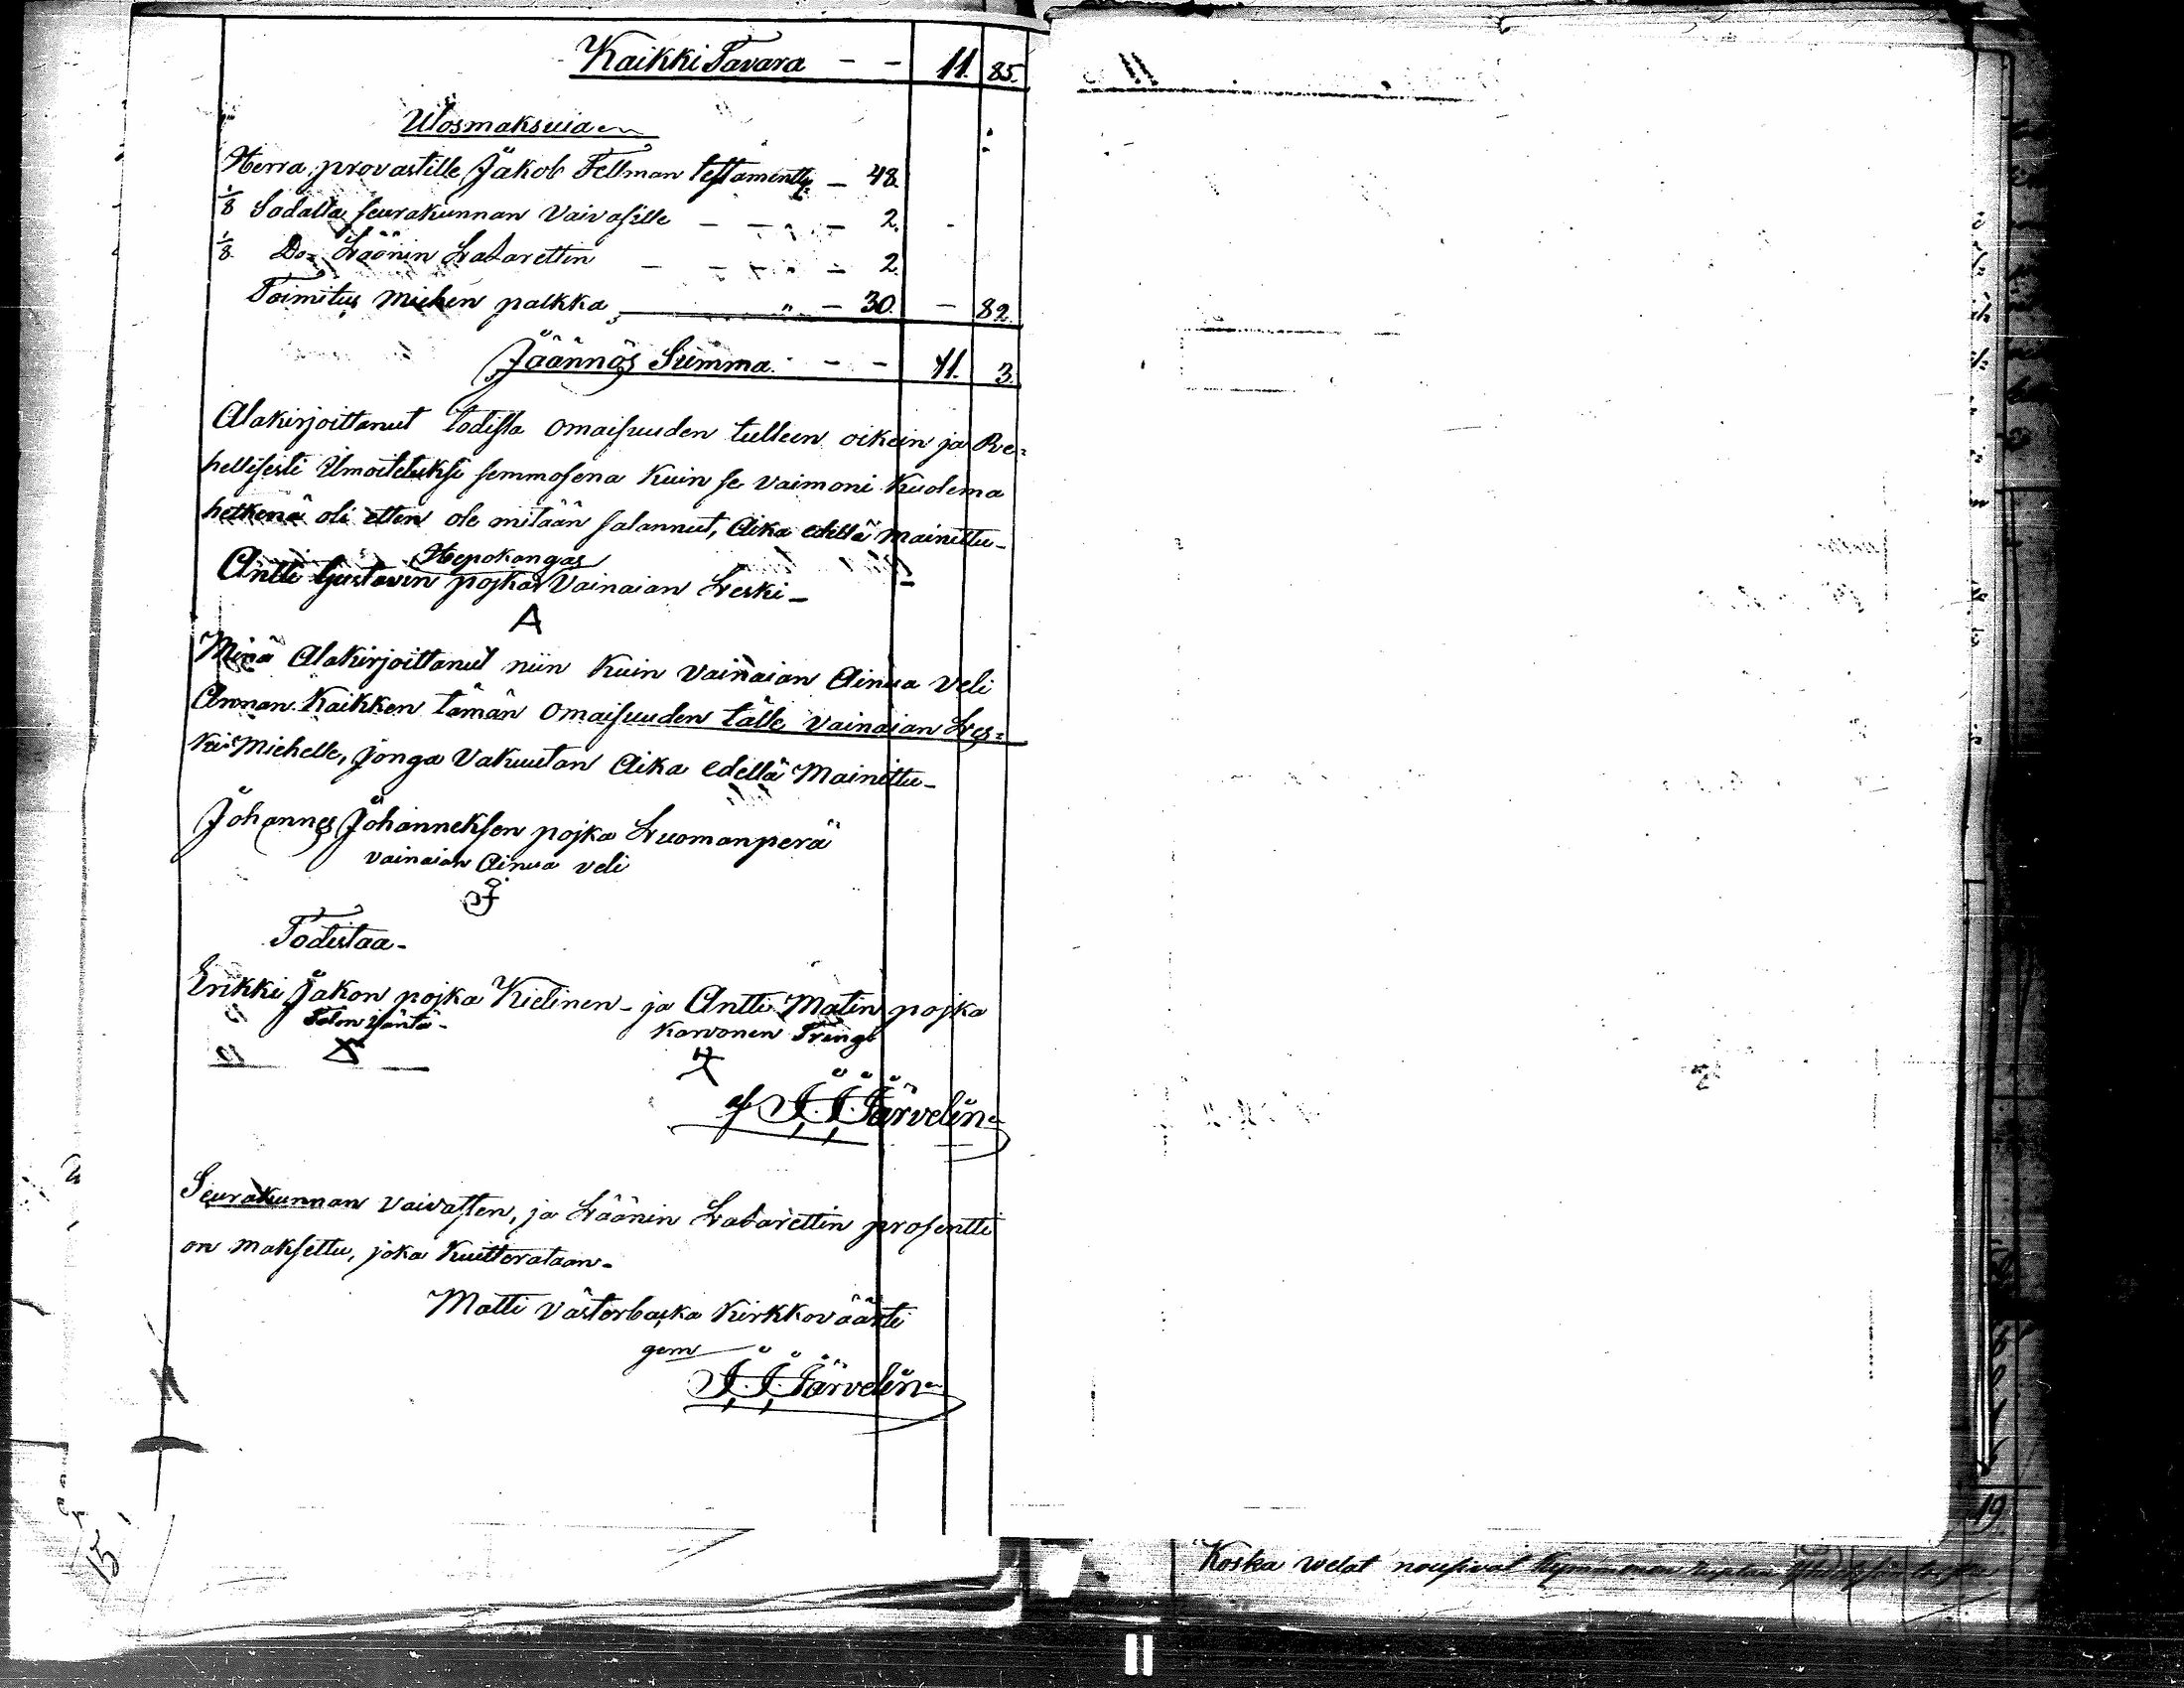 Kaikki Tavara - - 11. 85.
Ulosmaksuia
Herra provastille Jakob Fellman testamentti - 48.
1/8 Sadalta seurakunnan Vaivasille - - - - 2. -
1/8. Do= Läänin Latarettin - - - - 2.
Toimitus miehen palkka " - 30. - 82.
Jäännös Summa - - 11. 3.
Alakirjoittanut todista omaisuuden tulleen oikein ja Re=
hellisesti Ilmoitetuksi semmosena Kuin se vaimoni Kuolema
hetkenä oli etten ole mitään salannut, Aika edellä mainittu-
Hepokangas
Antti Gustavin pojka Vainaian Leski -
A
Minä Alakirjoittanut niin Kuin vainaian Ainua veli
Annan Kaikken tämän omaisuuden tälle vainaian Les=
ki Miehelle, jonga Vakuutan Aika edellä Mainittu-
Johannes Johanneksen pojka Luomanperä
vainaian Ainua veli
J
Todistaa-
Erikki Jakon pojka Kielinen - ja Antti Matin pojka
Talon Isäntä - Karvonen Träng
af J. J. Järvelin
Seurakunnan vaivasten, ja Läänin Latarettin prosentti
on maksettu, joka Kuitterataan-
Matti Västerbacka Kirkkoväärti
gem
J. J. Järvelin
15
19
Koska velat nousivat
11